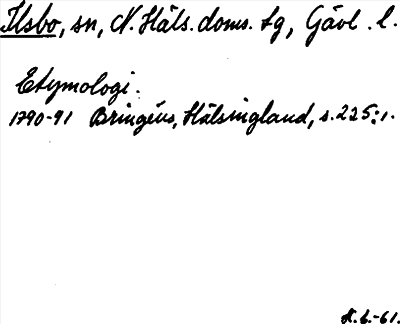 Ilsbo, sn, N. Häls. doms. tg, Gävl. l.
Etymologi.
1790-91 Bringéus, Hälsingland, s. 225:1.
K.L.-61.